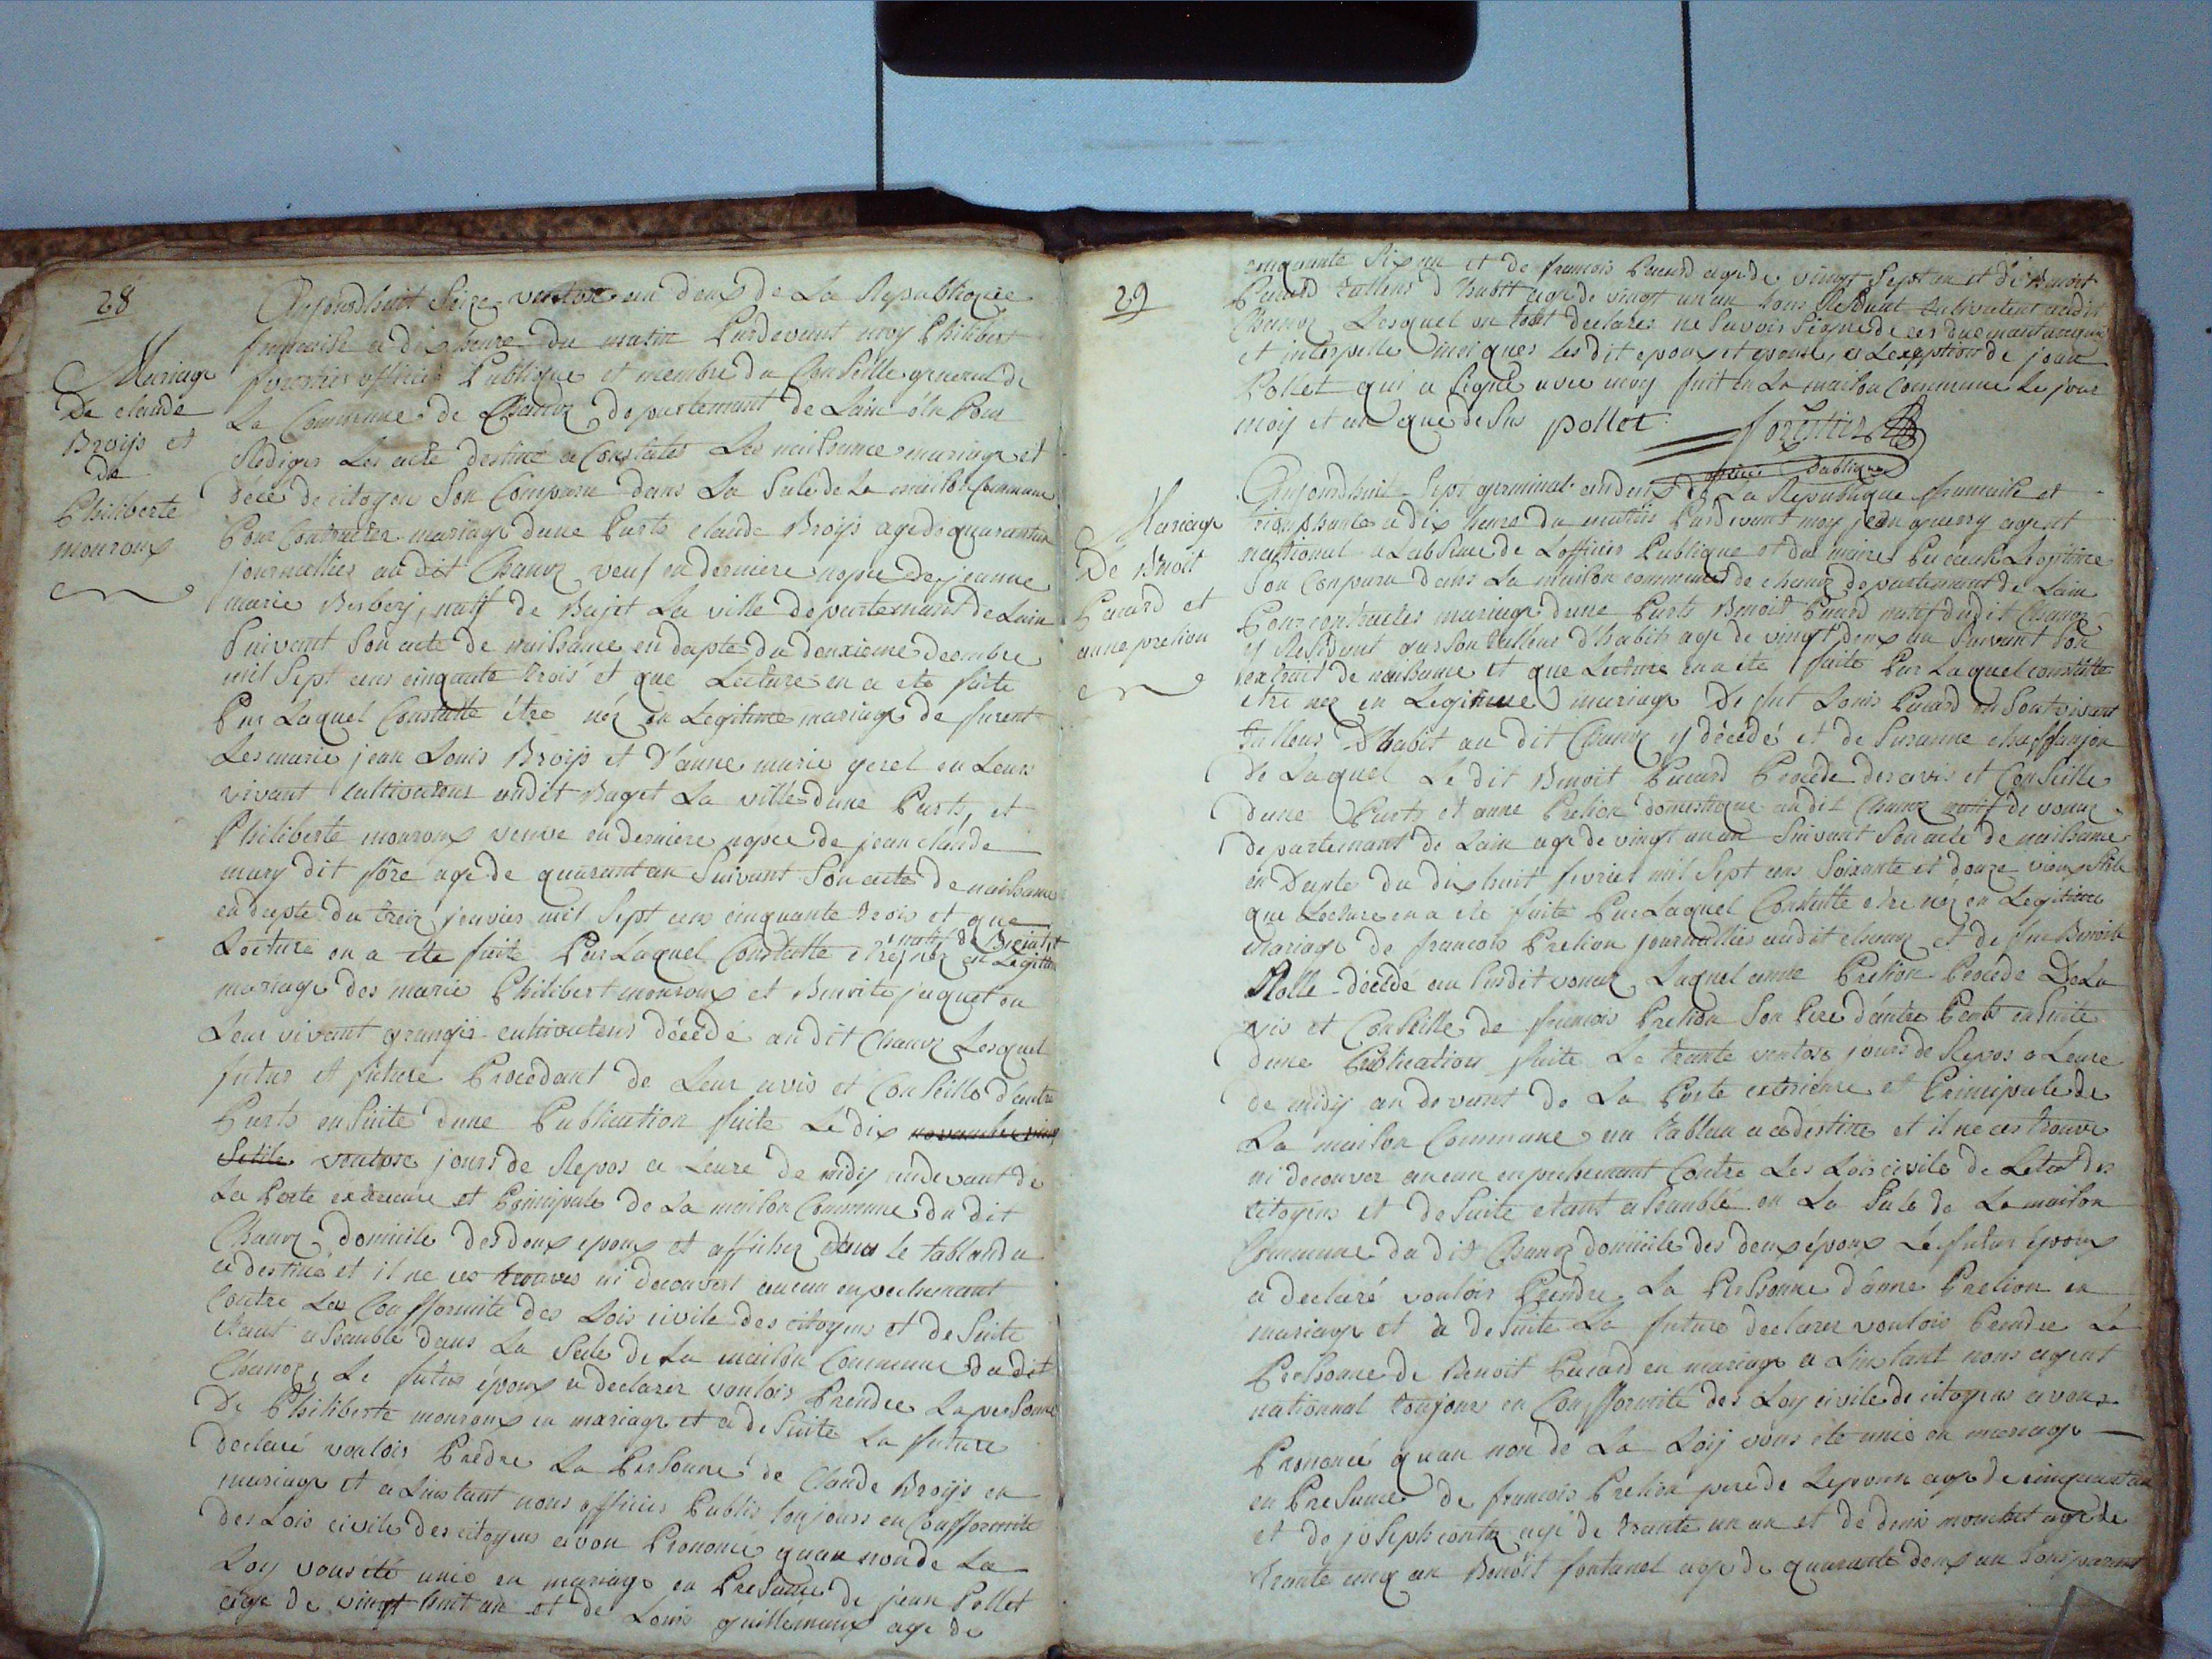 28
Mariage
De claude
Broijs et
de
Philiberte
mouroux
Aujourdhuit Seize ventose an deux de La Republique
francaise a dix heure du matin Pardevant moy Philibert
forestier officier Publique et membre du Conseille general de
La Commune de Chanoz departemant de Lain élu Pour
Rediger Les acte destiné a Constater Les naissance mariage et
décé de citoyen Son Comparu dans La Sale de La maison Commune
Pour Contracter mariage dune Parts claude Broijs age de quarante
journallier au dit Chanoz veuf en derniere nopce de jeanne
marie natif de Bajet La ville departemant de Lain
Suivant Son acte de naissance en dapte du deuxieme decembre
mil Sept cens cinqante trois et que Lecture en a ete faite
Par Laquel Constatte étre néz en Legitime mariage de furent
Les marie jean Louis Broijs et d'anne marie gerel en Leurs
vivant Cultivateur audit Baget La ville dune Parts, et
Philiberte mouroux veuve en derniere nopce de jean claude
mary dit fore age de quarant an Suivant Son acte de naissance
en dapte du treiz janvier mil Sept cens cinquante trois et que
natif de
Lecture en a ete faite Par Laquel Constatte etre néz en Legitime
mariage des marié Philibert mouroux et Benoite jaquet en
Leur vivant grangie cultivateur décédé au dit Chanoz Lesquel
futur et future Procedant de Leur avis et Conseille d'autre
Parts ensuite dune Publication faite Le dix novambre
Setile ventose jours de Repos a Leure de midy audevant de
La Porte exterieure et Principale de La maison Commune du dit
Chanoz domicile des deux epoux et afficher dans le tablau a
ce destiné et il ne ces trouves ni decouvert aucun enpechemant
Contre La Confformité des Lois civile des citoyens et de Suite
étant assamblé dans La Sale de La maison Commune du dit
Chanoz, Le futur époux a declarer vouloir Prendre La personne
De Philiberte mouroux en mariage et a de Suite La future
declaré vouloir Predre La Personne de Claude Broijs en
mariage et a Linstant nous officier Public toujours en Confformité
des Lois civile des citoyens avon Prononcé quau nom de La
Loy vous été unie en mariage en Presance de jean Pollet
age de vingt huit an et de Louis guillemaux age de
29
cinquante Six an et de francois Pacard age de vingt Sept an et de Benoit
Pacard tallieur d'habit age de vingt un an tous Residant Cultivateur audit
Chanoz Lesquel on tout declarer ne Savoir Signe de ces duemant
et interpellé les dit epoux et epouse, a Lexception de jean
Pollet qui a Signé avec moy fait en La maison Commune Le jour
moy et an que de Sus pollet forestier
officier Publique
Mariage
De Bnoit
Pacard et
anne prelion
Aujourdhuit Sept germinal an deux de La Republique francaise et
trionphante a dix heure du matin Pardevant moy jean guerry agent
naitional a Labsance de Lofficier Publique et du maire Par cause Legitime
Son Conparu dans La maison commune de chanoz departemant de Lain
Pour contracter mariage dune Parts Benoit Pacard natif du dit Chanoz
y Residant garson tallieur d'habits age de vingt deux an Suivant Son
extrait de naissance et que Lecture en a ete faite Par Laquel constatte
etre nez en Legitime mariage De fut Louis Pacard en Son vivant
tallieur D'habit au dit Chanoz y décédé et de Susanne chaffanjon
de Laquel Le dit Benoit Pacard Procede des avis et Conseille
dune Parts et anne Prelion domestique audit Chanoz natif de vonnaz
departemant de Lain age de vingt un an Suivant Son acte de naissance
en Dapte du dix huit fevrier mil Sept cens Soixante et douze vieux Stile
que Lecture en a ete faite Par Laquel Constatte etre néz en Legitime
Mariage de francois Prelion journallier audit chanoz et de fue Benoite
Rolle décédé au Susdit vonaz Laquel anne Prelion Procede De La
vis et Conseille de francois Prelion Son Pere d'autre Parts ensuite
dune Publication faite Le trante ventose jours de Repos a Leure
de midy au devant de La Porte exterieure et Principale de
La maison Commune au tablau a ce destiné et il ne ces trouve
ni decouver aucun enpechemant Contre Les Lois civile de Letat des
citoyens et de Suite etant assamblé en La Sale de La maison
Commune du dit Chanoz domicile des deux époux Le futur époux
a declaré vouloir Prendre La Personne d'anne Prelion en
mariage et a de Suite La future declarer vouloir Prendre La
Personne de Benoit Pacard en mariage a Linstant nous agent
nationnal toujour en Confformité des Loy civile de citoyens avons
Prononcé quau non de La Loij vous été unie en mariage
en Presance de francois Prelion pere de Lepouse age de cinquant an
et de joseph contez age de trante un an et de denis mouchet age de
trante cinq an Benoit fontanel age de quarante deux an tous parant